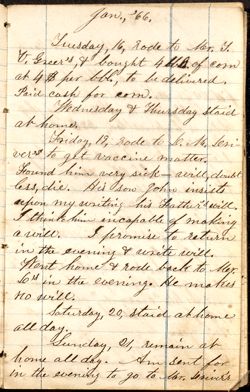 Jan, '66.
Tuesday, 16, rode to Mr. T.
V. Greer's, & bought 4 bbls of corn
at 4$ per bbl, to be delivered.
Paid cash for corn.
Wednesday & Thursday staid
at home.
Friday, 19, rode to
to get vaccine matter.
Found him very sick—will, doubt
less, die. His son John insists
upon my writing his Father's will.
I think him incapable of making
a will. I promise to return
in the evening & write will.
Went home & rode back to Mr.
in the evening. He makes
no will.
Saturday, 20, staid at home
all day.
Sunday, 21, remain at
home all day. Am sent for
in the evening to go to Mr.